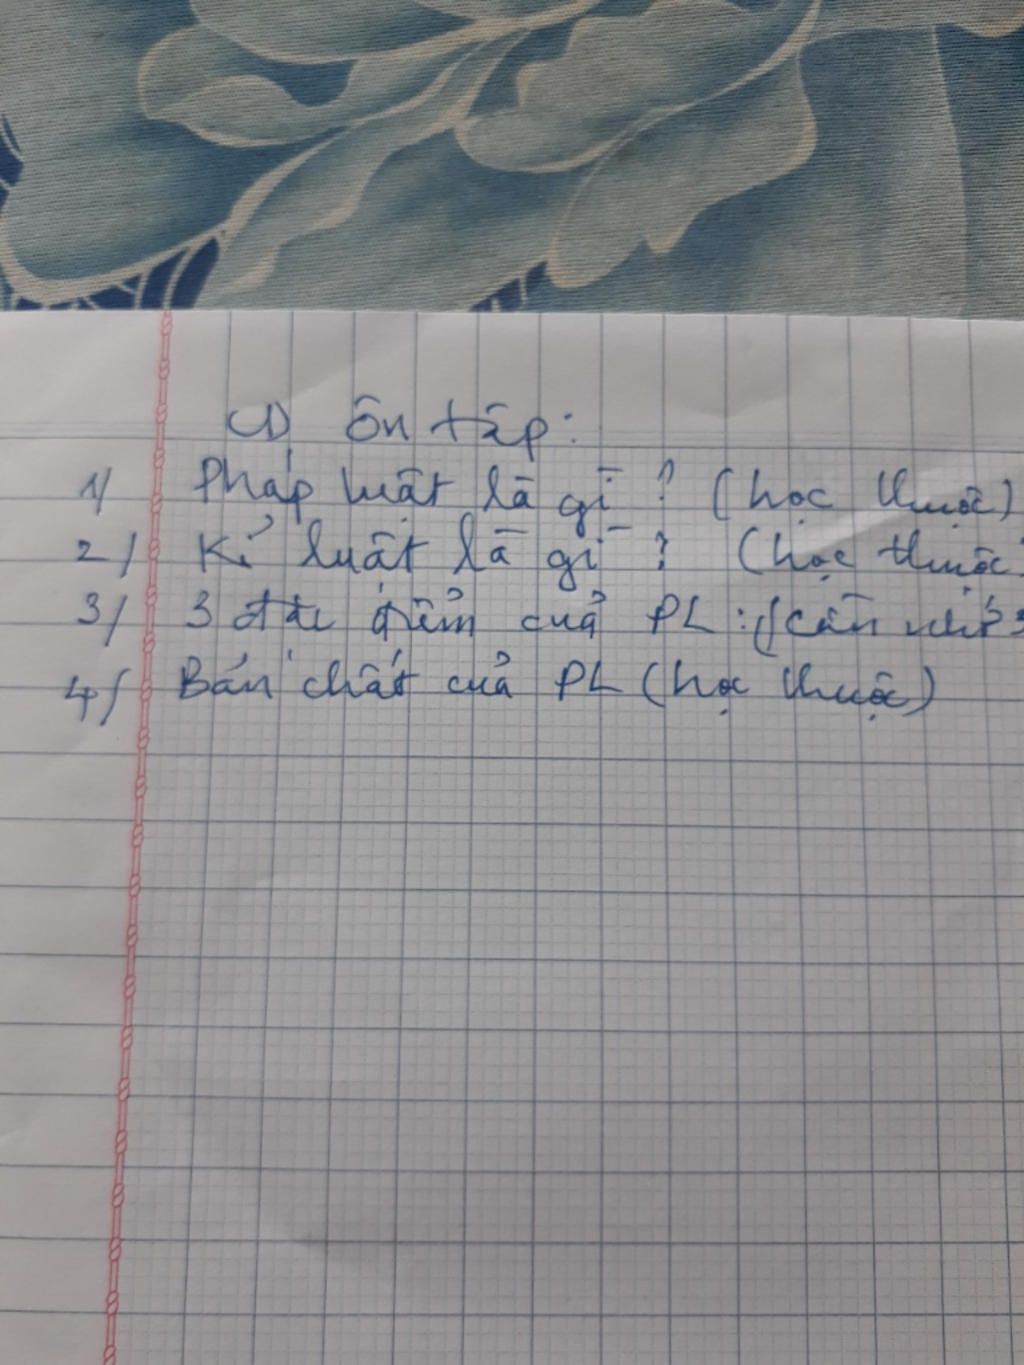 Ôn tập:
1/ Pháp luật là gì ? (học thuộc)
2/ Kỉ luật là gì ? (học thuộc
3/ 3 đặc điểm của PL : (cần nhớ
4/ Bản chất của PL (học thuộc)